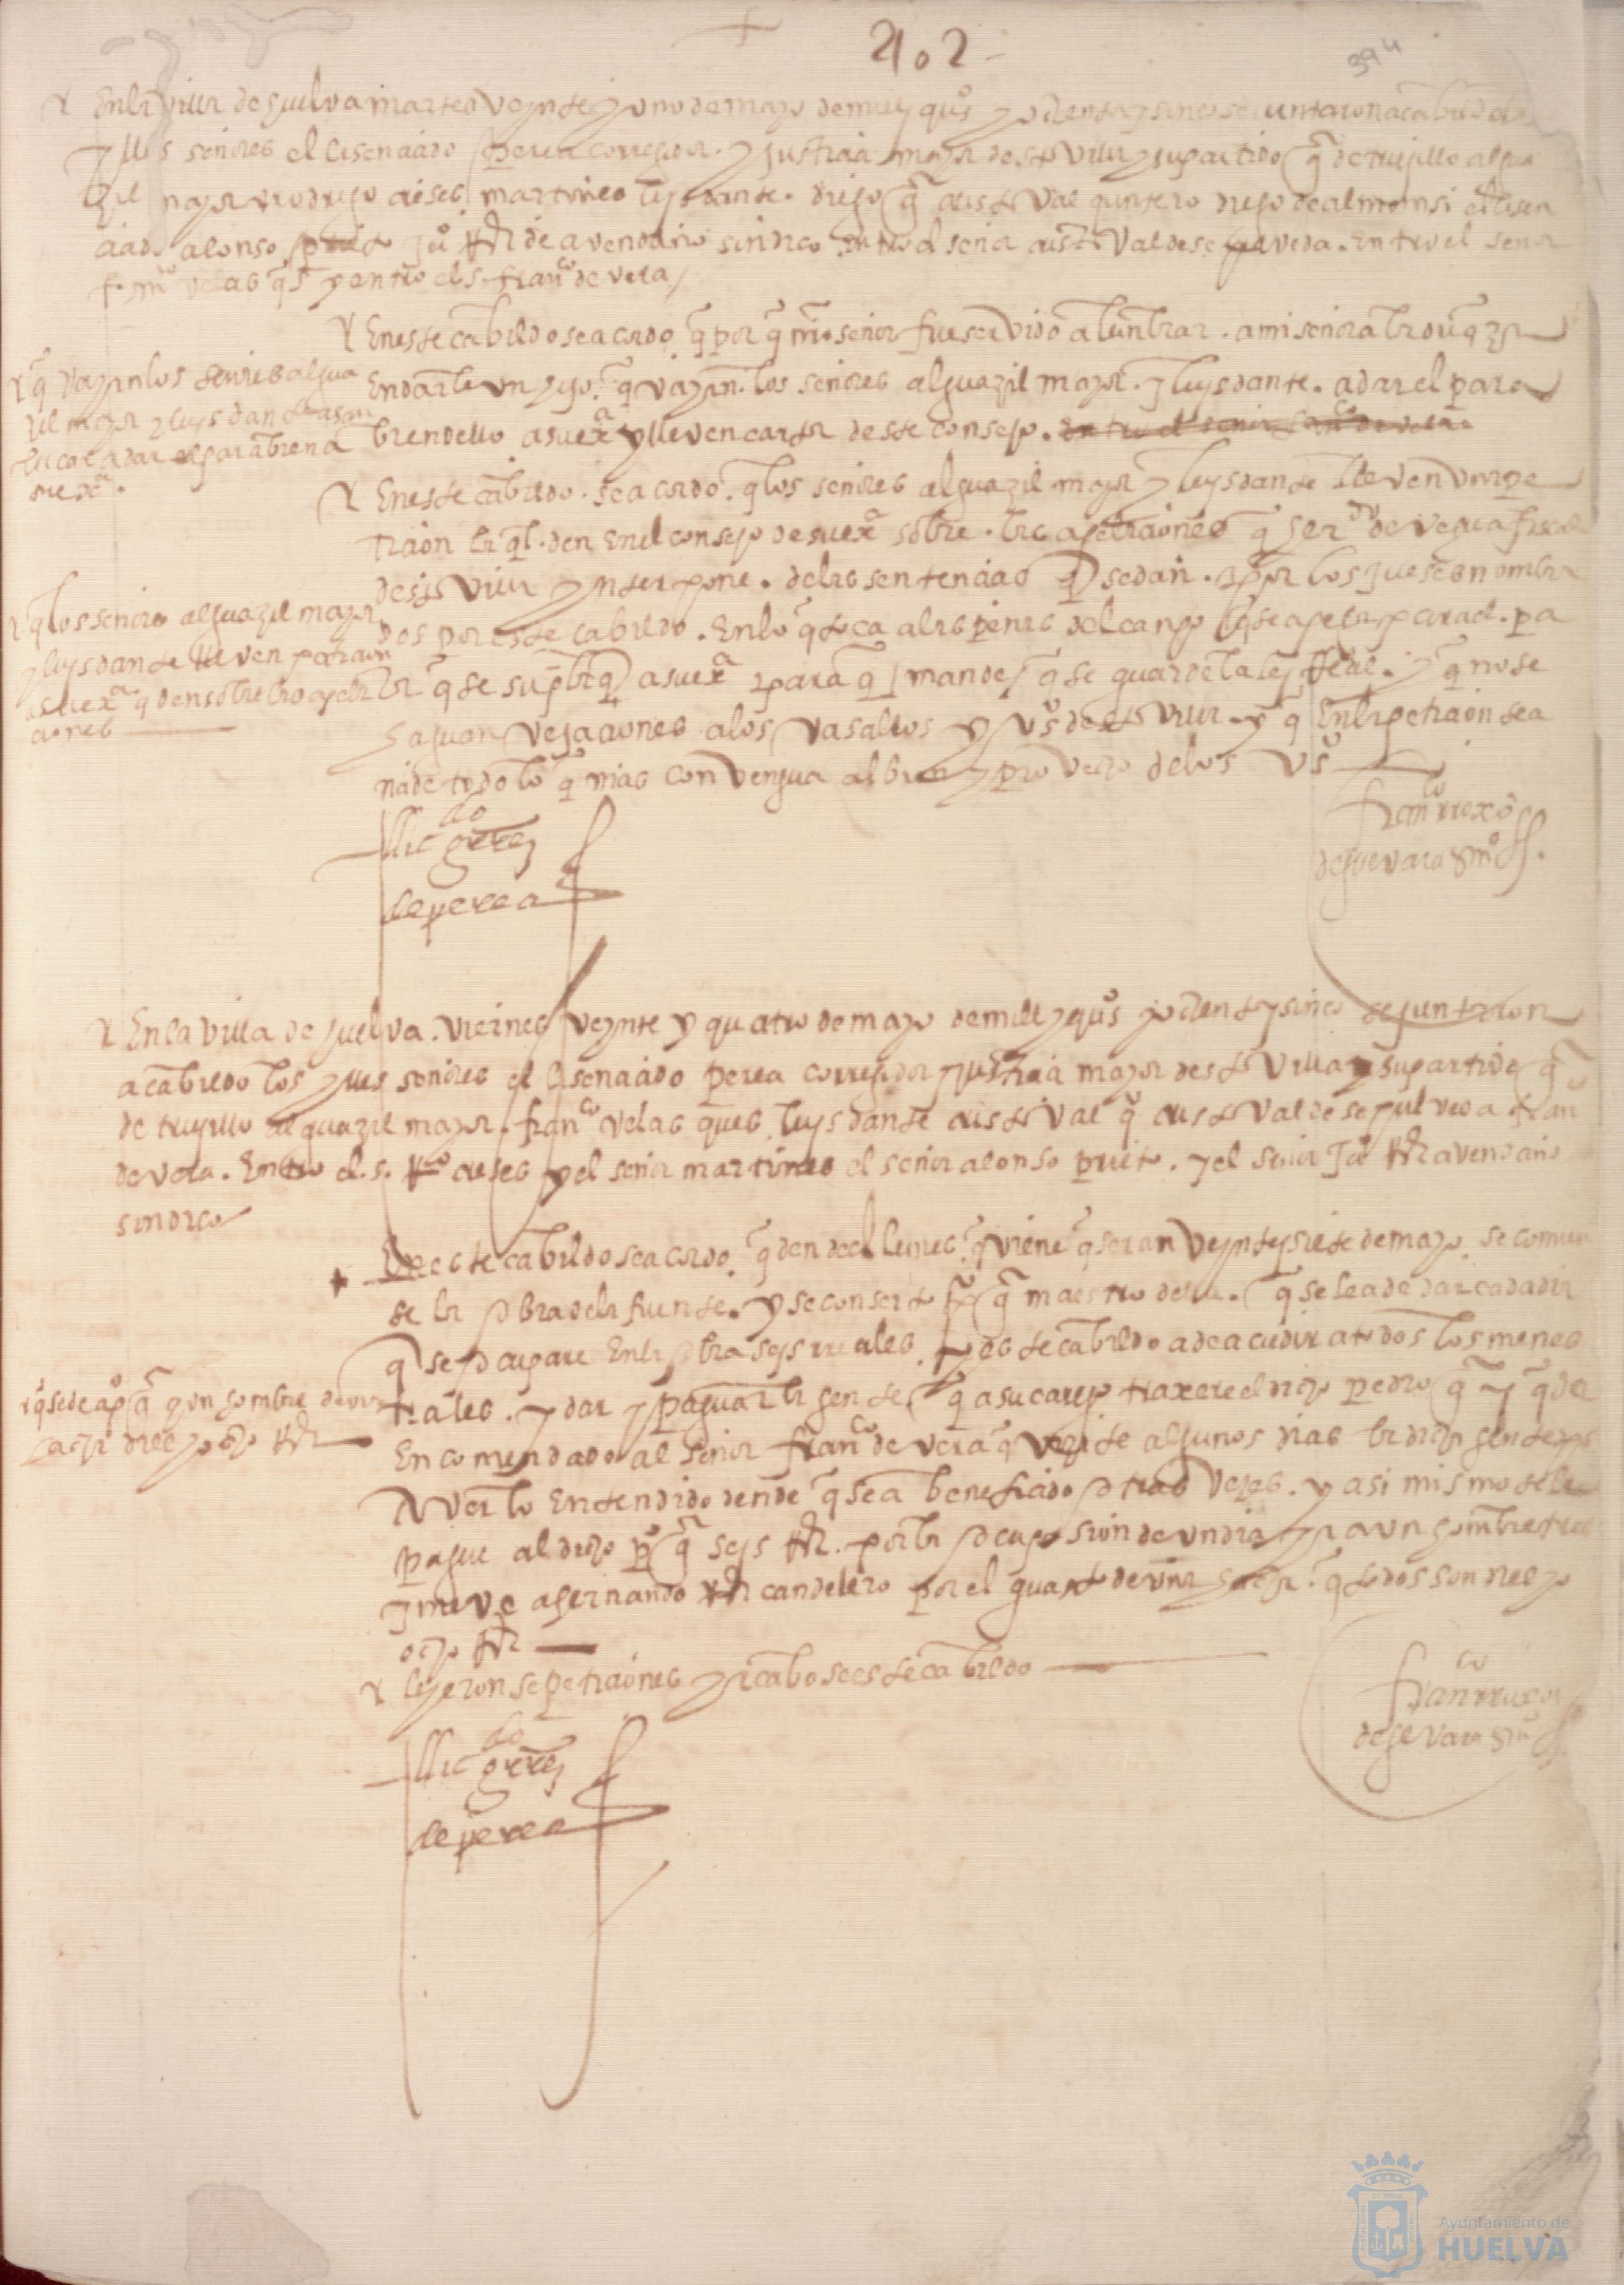 402
394
En la villa de huelva martes veynte y uno de mayo de mill y qus y ochenta y sinco se juntaron a cabildo los
yllus señores el lisenciado perea corregidor. y justicia mayor desta villa y su partido gr de trujillo algua
zil mayor rrodrigo crises martines luys dante. diego gr cristoval quintero diego de almonsi el lisen
ciado alonso prieto ju rr de avendaño sindico. entro el señor cristoval de sepulveda. entro el señor
franco velasqs y entro el s. franco de vera
En este cabildo se acordo q por q nro señor fue servido alunbrar. a mi señora la duqza
en darle un hijo. q vayan. los señores alguazil mayor. y luys dante. a dar el para
bien dello a su exa y lleven carta deste consejo. entro el señor franco de vera
q vayan los señores algua
zil mayor y luys dante a san
lucar a dar el parabien a
su exa.
En este cabildo. se acordo. q los señores alguazil mayor y luys dante lleven una pe
ticion la ql. den en el consejo de su exa sobre. las apelaciones q herdo de vegua fiscal
desta villa ynterpone. de las sentencias q se dan. por los jueses nombra
dos por este cabildo. en lo q toca a las penas del canpo q se apela para el. pa
la q se suplique a su exa para q mande q se guarde la ley rreal. y q no se
haguan vejaciones a los vasallos y vs desta villa. y q en la peticion sea
ñade todo lo q mas convengua al bien y provecho de los vs
q los señores alguazil mayor
y luys dante lleven peticion
a su exa q den sobre las apela
ciones
llicdo grrez
de perea
franco rrexo
de guevara smo
En la villa de huelva. viernes veynte y quatro de mayo de mill y qus y ochenta y sinco se juntaron
a cabildo los yllus señores el lisenciado perea corregidor y justicia mayor desta villa y su partido gr
de trujillo alguazil mayor. franco velasques luys dante cristoval qo cristoval de sepulveda fran
de vera. entro el. s. rro crises y el señor martines el señor alonso prieto. y el señor ju rr avendaño
sindico
En este cabildo se acordo. q dende el lunes. q viene q seran veynte y siete de mayo. se comien
se la obra de la fuente. y se conserto po gr maestro della. q se le a de dar cada dia
q se ocupare en la obra seys rreales. y este cabildo a de acudir a todos los menes
trales. y dar y paguar la gente q a su cargo traxere el dicho pedro gr y q de
encomendado al señor franco de vera q vizite algunos dias la dicha gente por
aver lo entendido dende q se a beneficiado otras vezes. y asi mismo se le
pague al dicho po gr seys rr. por la ocupasion de un dia y a un hombre tres
y mas a hernando rr candelero por el guasto de una hacha. q todos son dies y
ocho rr
q se de a po gr y un hombre de una
hacha dies y ocho rr
leyeronse peticiones y acabose este cabildo
llicdo grrez
de perea
franco rrexo
de gevara smo
Ayuntamiento de
HUELVA